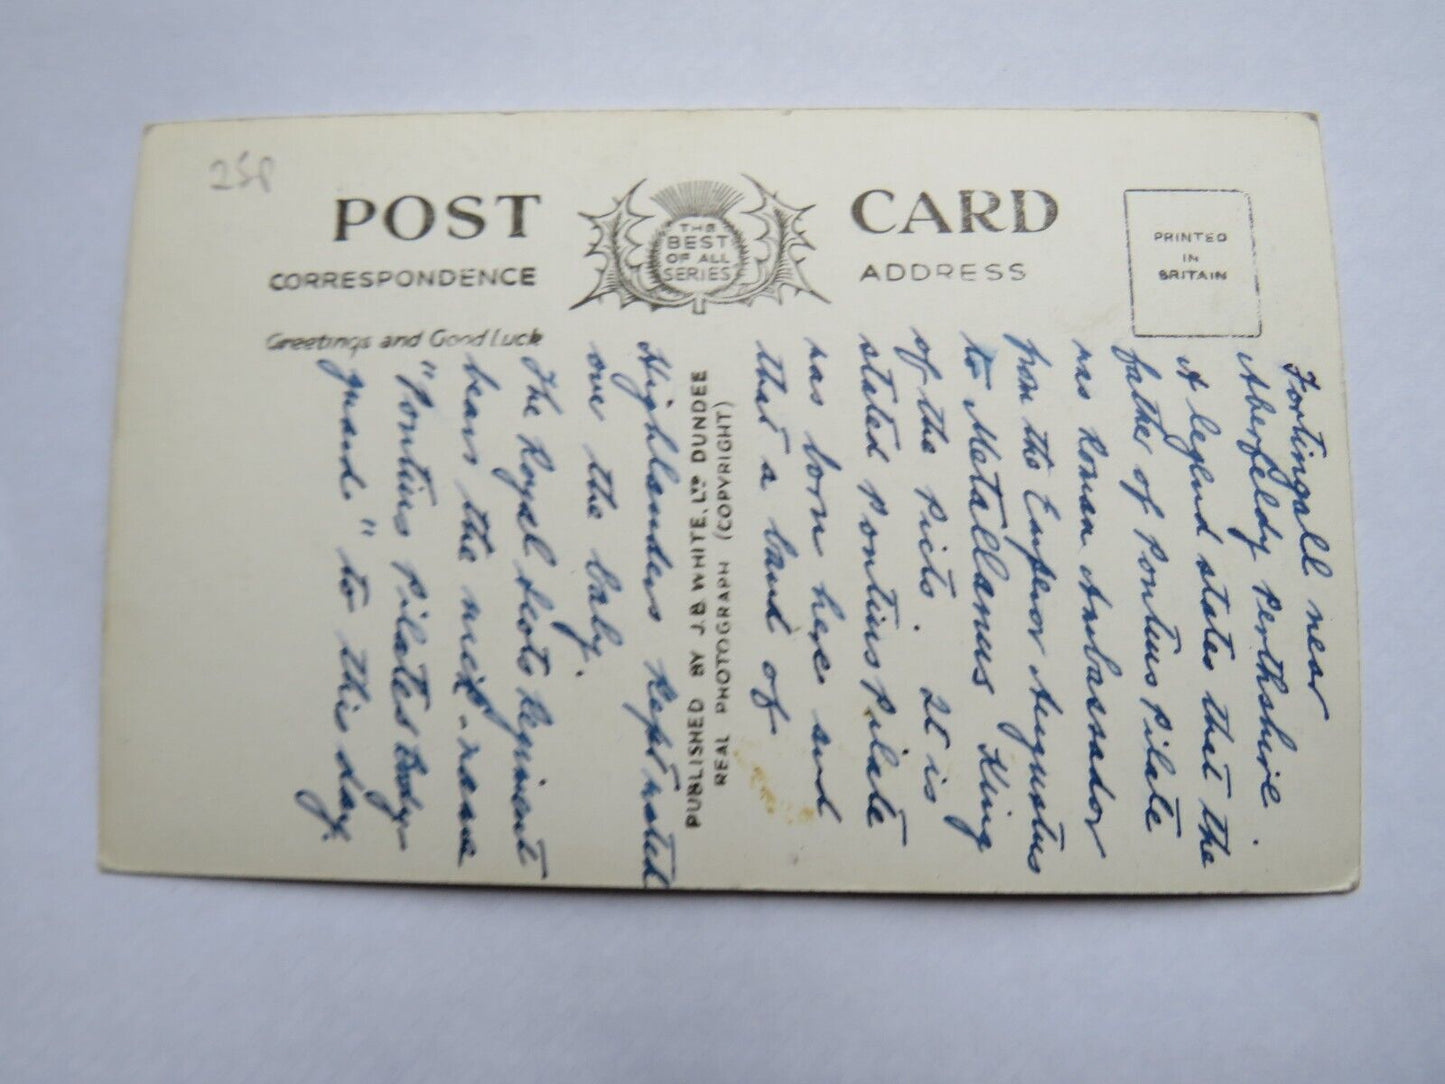 25P
POST CARD
THE
BEST
OF ALL
SERIES
CORRESPONDENCE
ADDRESS
PRINTED
IN
BRITAIN
Greetings and Good Luck
PUBLISHED BY J.B. WHITE, LTD DUNDEE
REAL PHOTOGRAPH (COPYRIGHT)
Fortingall near
Aberfeldy Perthshire.
A legend states that the
father of Pontius Pilate
was Roman Ambassador
from the Emperor Augustus
to Metallanus King
of the Picts. It is
stated Pontius Pilate
was born here and
that a band of
Highlanders kept watch
over the baby.
The Royal Scots Regiment
bears the nick-name
"Pontius Pilates Body
guard" to this day.